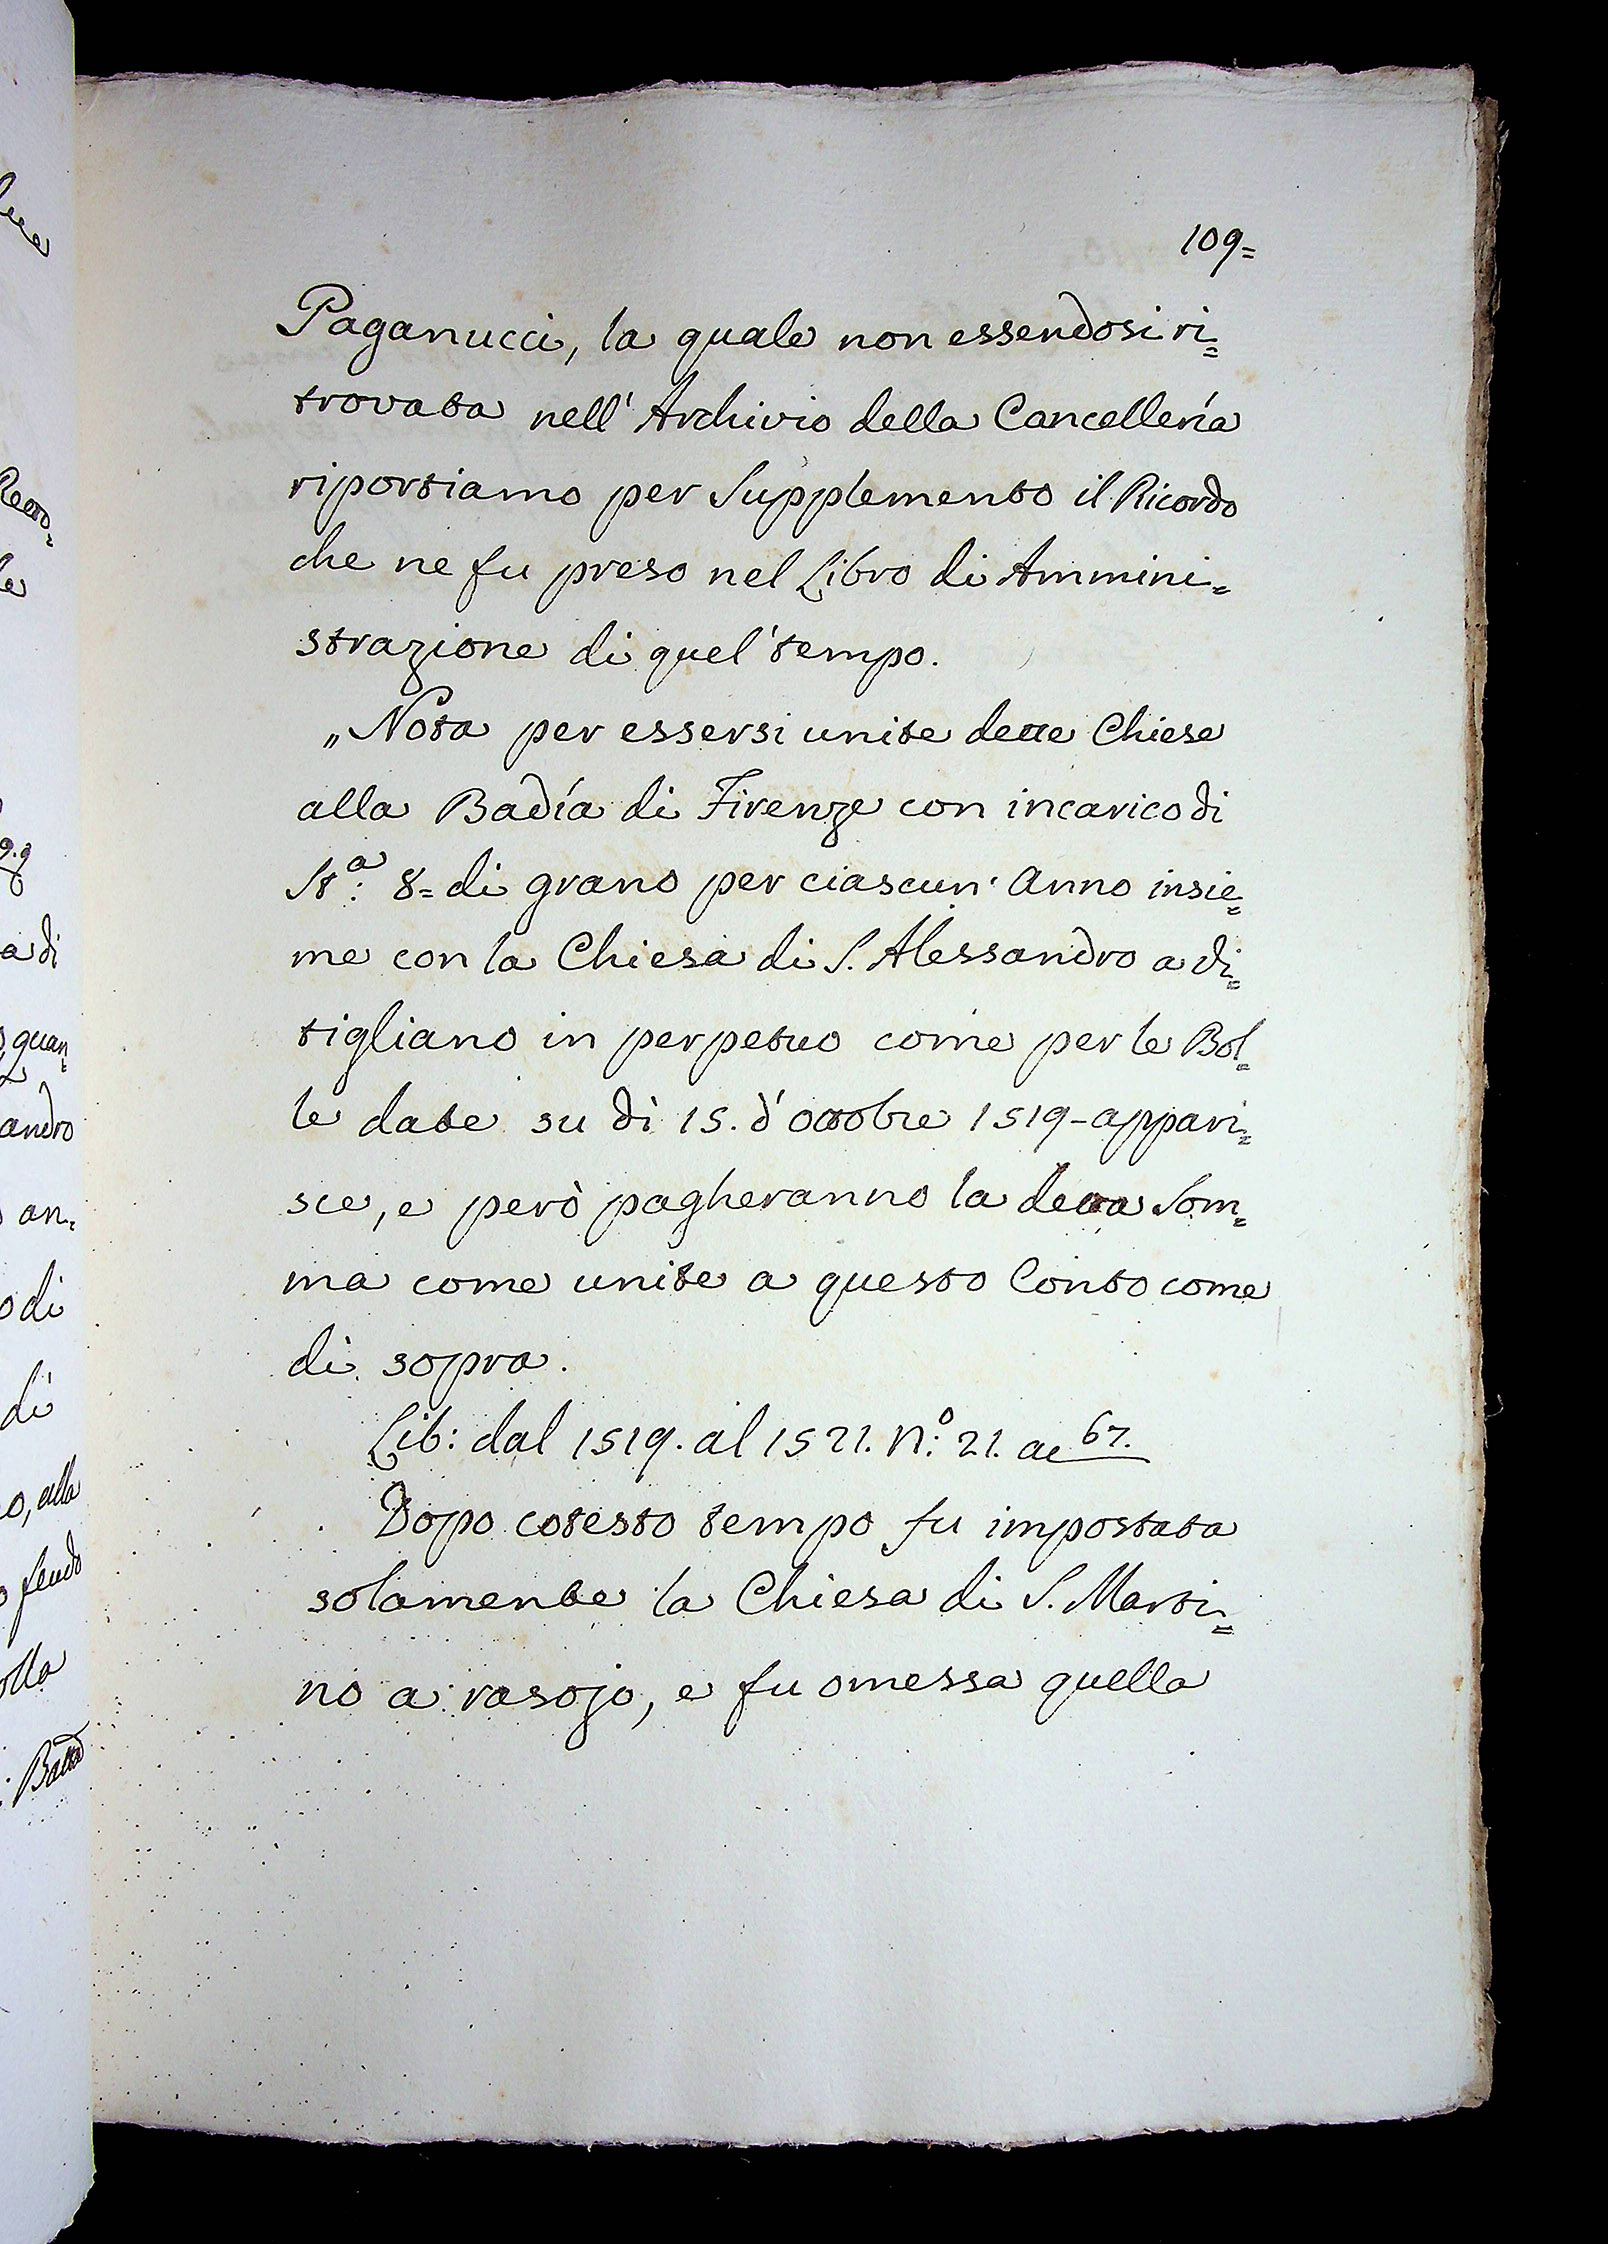 109=
Paganucci, la quale non essendosi ri=
trovata nell' Archivio della Cancellería
riportiamo per Supplemento il Ricordo
che ne fu preso nel Libro di Ammini=
strazione di quel' tempo.
„Nota per essersi unite dette Chiese
alla Badía di Firenze con incarico di
St.ª: 8= di grano per ciascun' Anno insie=
me con la Chiesa di S. Alessandro a di=
tigliano in perpetuo come per le Bol=
le date su dì 15. d' ottobre 1519- appari=
sce, e però pagheranno la detta Som=
ma come unite a questo Conto come
di sopra.
Lib: dal 1519. al 1521. N.º: 21. ac 67.
Dopo cotesto tempo fu impostata
solamente la Chiesa di S. Marti=
no a rasojo, e fu omessa quella
a di
quan=
andro
an=
o di
di
o, alla
feudo